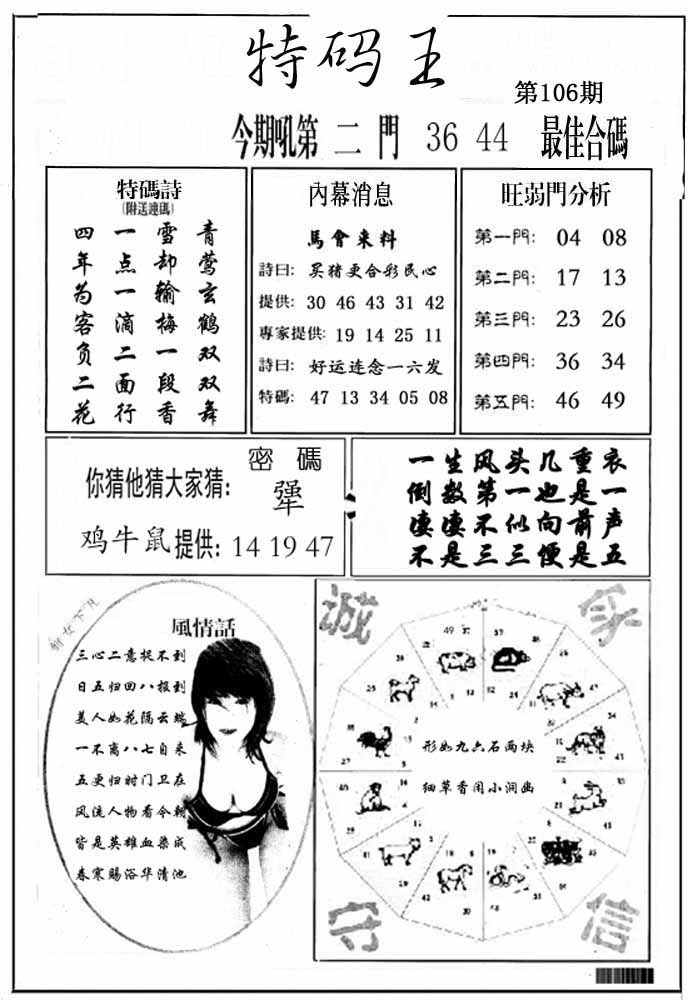 特码王
第106期
今期吼第 二 門 36 44 最佳合碼
特碼詩
(附送連碼)
青莺玄鹤双双舞
雪却输梅一段香
一点一滴二面行
四年为客负二花
內幕消息
馬會来料
詩曰: 买猪更合彩民心
提供: 30 46 43 31 42
專家提供: 19 14 25 11
詩曰: 好运连念一六发
特碼: 47 13 34 05 08
旺弱門分析
第一門: 04 08
第二門: 17 13
第三門: 23 26
第四門: 36 34
第五門: 46 49
密碼
你猜他猜大家猜: 犟
鸡牛鼠提供: 14 19 47
一生风头几重衣
倒数第一也是一
凄凄不似向前声
不是三三便是五
風情話
三心二意捉不到
日五归回八报到
美人如花隔云端
一不离八七自来
五更归时门卫在
风流人物看今朝
皆是英雄血染成
春寒赐浴华清池
诚
守
信
形如九六石两块
细草香闲小涧幽